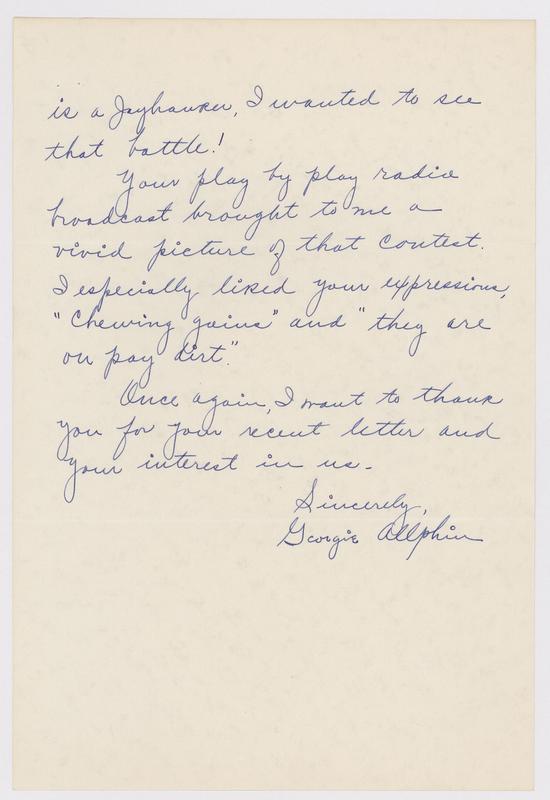 is a Jayhawker, I wanted to see
that battle!
Your play by play radio
broadcast brought to me a
vivid picture of that contest.
I especially liked your expressions,
"Chewing gains" and "they are
on pay dirt."
Once again, I want to thank
you for your recent letter and
your interest in us.
Sincerely,
Georgie Allphin